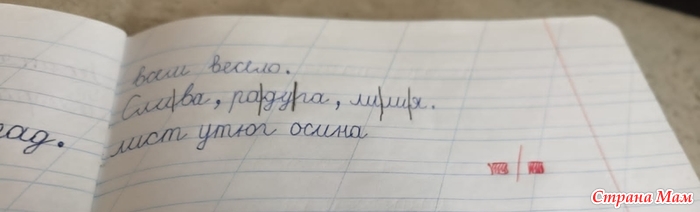 вам весело.
Сла|ва, ра|ду|га, ли|ли|я.
ад.
лист утюг осина
Страна Мам